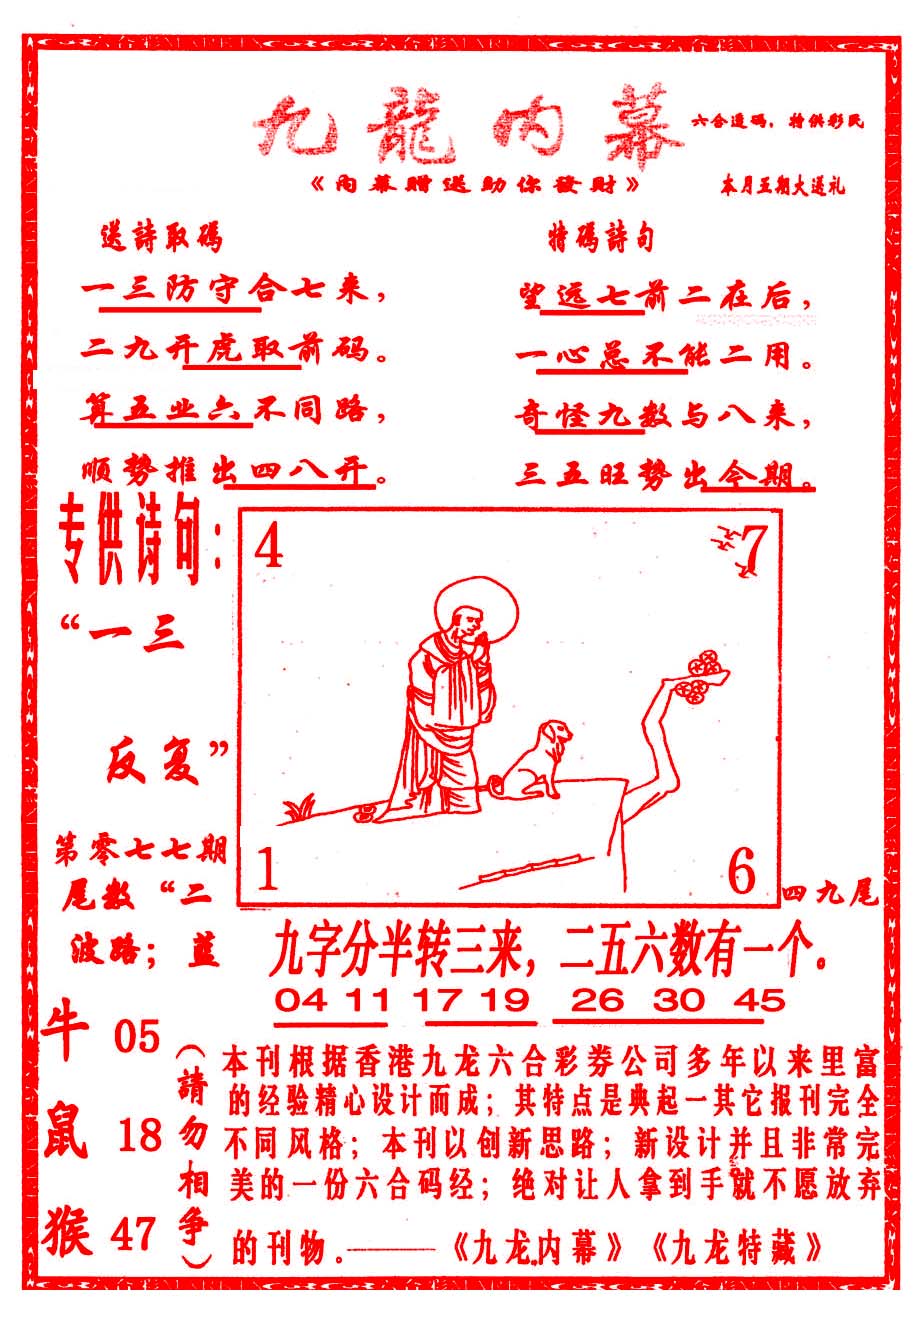 九龍内幕
六合透码，特供彩民
《内幕赠送助你發财》
本月五期大送礼
送詩取碼
一三防守合七来，
二九开虎取前码。
算五业六不同路，
顺势推出四八开。
特碼詩句
望远七前二在后，
一心总不能二用。
奇怪九数与八来，
三五旺势出今期。
专供诗句：
“一三
反复”
第零七七期
尾数“二
波路；蓝
4
7
1
6
四九尾
九字分半转三来，二五六数有一个。
04 11 17 19 26 30 45
牛 05
鼠 18
猴 47
（請勿相争）
本刊根据香港九龙六合彩券公司多年以来里富
的经验精心设计而成；其特点是典起一其它报刊完全
不同风格；本刊以创新思路；新设计并且非常完
美的一份六合码经；绝对让人拿到手就不愿放弃
的刊物。——《九龙内幕》《九龙特藏》